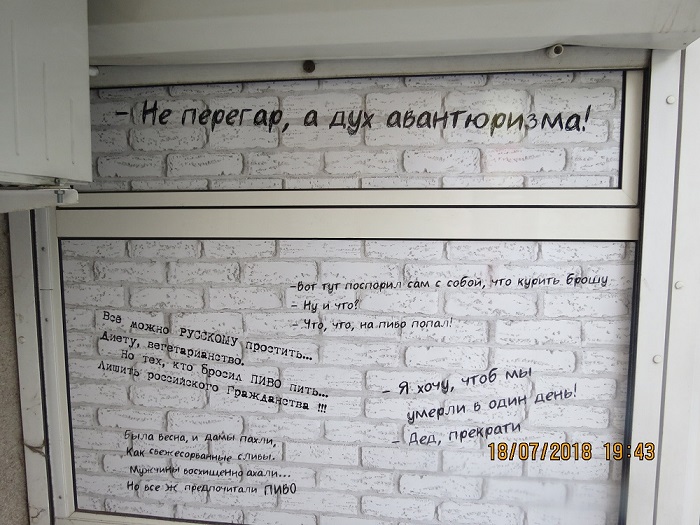 - Не перегар, а дух авантюризма!
-Вот тут поспорил сам с собой, что курить брошу
- Ну и что?
- Что, что, на пиво попал!
Всё можно РУССКОМУ простить...
Диету, вегетарианство.
Но тех, кто бросил ПИВО пить...
Лишить российского Гражданства !!!
- Я хочу, чтоб мы
умерли в один день!
- Дед, прекрати
Была весна, и дамы пахли,
Как свежесорванные сливы.
Мужчины восхищенно ахали...
Но все ж предпочитали ПИВО
18/07/2018 19:43